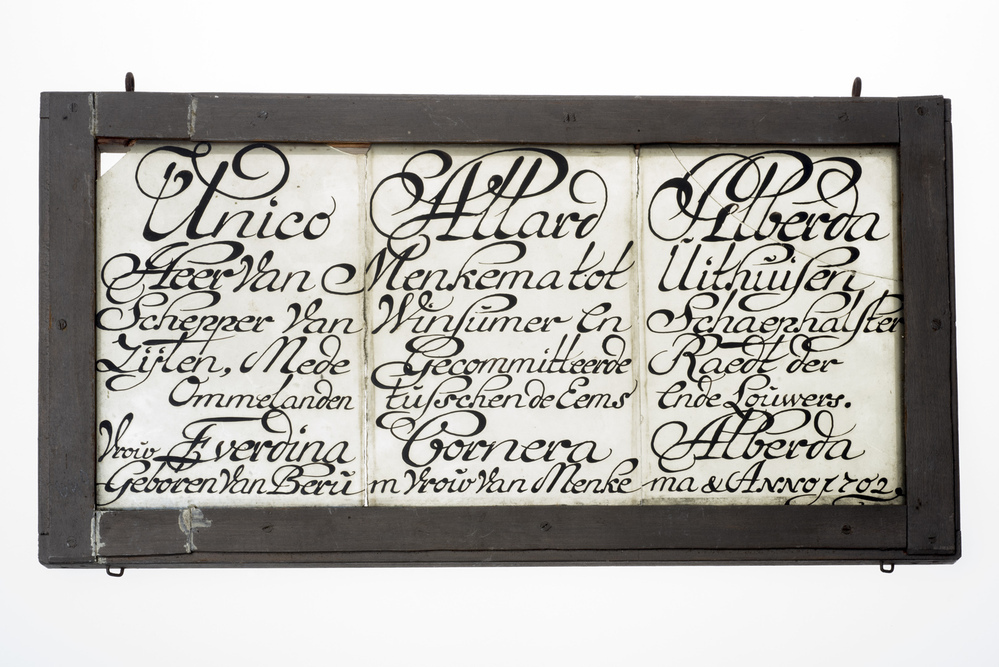 Unico Allard Alberda
Heer Van Menkema tot Uithuisen
Schepper Van Winsumer En Schaephalster
Zijlen, Mede Gecommitteerde Raedt der
Ommelanden tusschen de Eems Ende Louwers.
Vrouw Everdina Cornera Alberda
Geboren Van Berum Vrouw Van Menkema & Anno 1702.